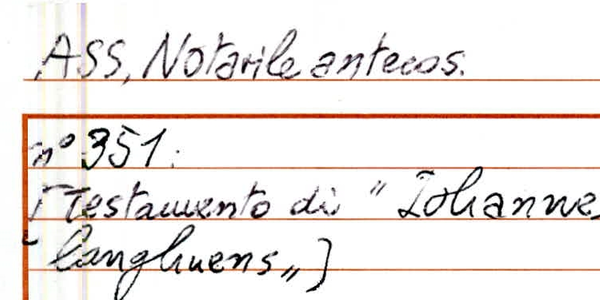 ASS, Notarile antecos.
n° 351:
[Testamento di " Iohannes
langhuens „]